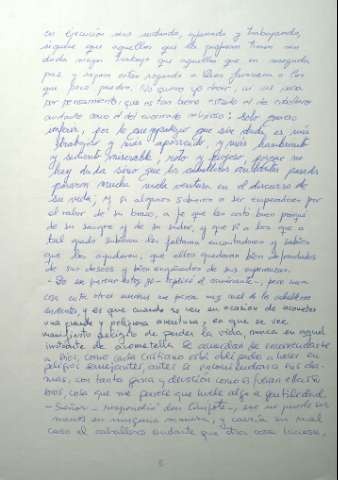 en ejecución sino sudando, afanando y trabajando,
síguese que aquellos que la profesan tienen sin
duda mayor trabajo que aquellos que en sosegada
paz y reposo están rogando a Dios favorezca a los
que poco pueden. No quiero yo decir, ni me pasa
por pensamiento, que es tan buen estado el de caballero
andante como el del encerrado religioso; solo quiero
inferir, por lo que yo padezco, que sin duda es más
trabajoso y más aporreado, y más hambriento
y sediento, miserable, roto y piojoso, porque no
hay duda sino que los caballeros andantes pasados
pasaron mucha mala ventura en el discurso de
su vida; y si algunos subieron a ser emperadores por
el valor de su brazo, a fe que les costó buen porqué
de su sangre y de su sudor, y que si a los que a
tal grado subieron les faltaran encantadores y sabios
que los ayudaran, que ellos quedaran bien defraudados
de sus deseos y bien engañados de sus esperanzas.
- De ese parecer estoy yo - replicó el caminante -, pero una
cosa entre otras muchas me parece muy mal de los caballeros
andantes, y es que cuando se ven en ocasión de acometer
una grande y peligrosa aventura, en que se vee
manifiesto peligro de perder la vida, nunca en aquel
instante de acometella se acuerdan de encomendarse
a Dios, como cada cristiano está obligado a hacer en
peligros semejantes, antes se encomiendan a sus da-
mas, con tanta gana y devoción como si fueran ellas su
Dios, cosa que me parece que huele algo a gentilidad.
- Señor - respondió don Quijote -, eso no puede ser
menos en ninguna manera, y caería en mal
caso el caballero andante que otra cosa hiciese,